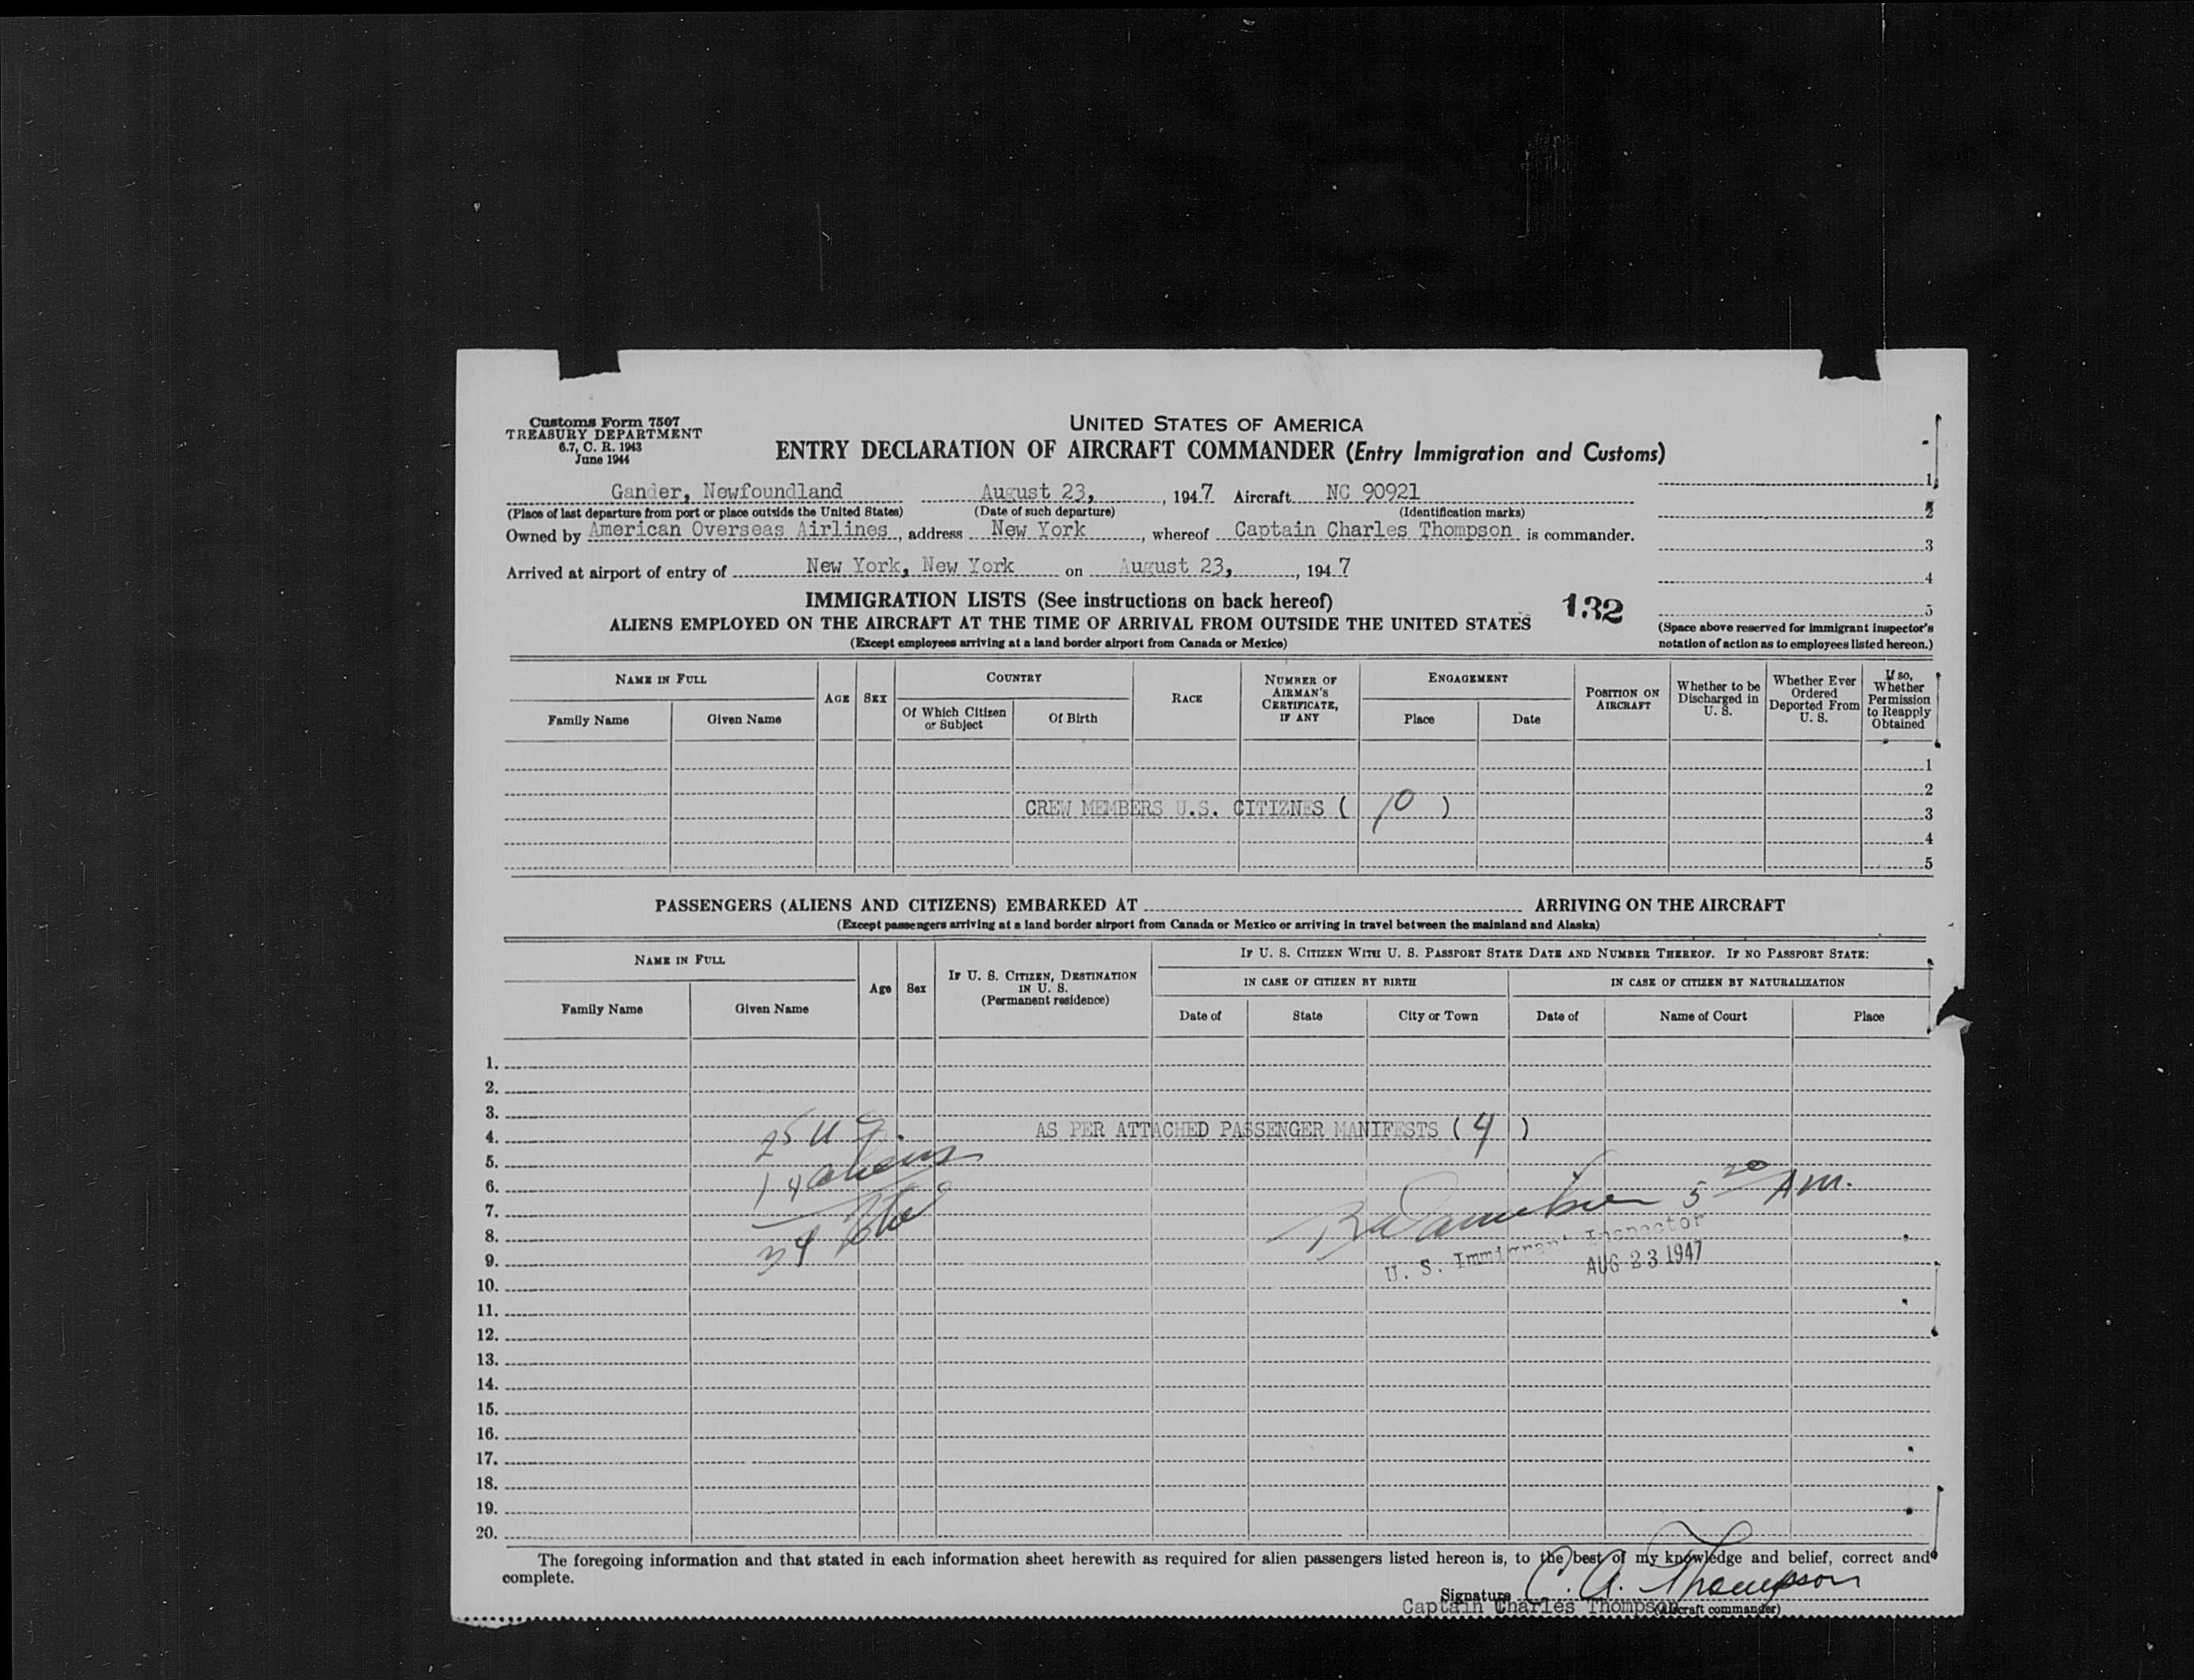 Customs Form 7507
TREASURY DEPARTMENT
6.7, C. R. 1943
June 1944
UNITED STATES OF AMERICA
ENTRY DECLARATION OF AIRCRAFT COMMANDER (Entry Immigration and Customs)
Gander, Newfoundland August 23, , 1947 Aircraft NC 90921
(Place of last departure from port or place outside the United States) (Date of such departure) (Identification marks)
Owned by American Overseas Airlines , address New York , whereof Captain Charles Thompson is commander.
Arrived at airport of entry of New York, New York on August 23, , 1947
1
2
3
4
5
(Space above reserved for immigrant inspector's
notation of action as to employees listed hereon.)
IMMIGRATION LISTS (See instructions on back hereof)
132
ALIENS EMPLOYED ON THE AIRCRAFT AT THE TIME OF ARRIVAL FROM OUTSIDE THE UNITED STATES
(Except employees arriving at a land border airport from Canada or Mexico)
NAME IN FULL
Family Name Given Name
AGE SEX
COUNTRY
Of Which Citizen or Subject Of Birth
RACE
NUMBER OF AIRMAN'S CERTIFICATE, IF ANY
ENGAGEMENT
Place Date
POSITION ON AIRCRAFT
Whether to be Discharged in U. S.
Whether Ever Ordered Deported From U. S.
If so, Whether Permission to Reapply Obtained
1
2
CREW MEMBERS U.S. CITIZNES ( 10 )
3
4
5
PASSENGERS (ALIENS AND CITIZENS) EMBARKED AT ARRIVING ON THE AIRCRAFT
(Except passengers arriving at a land border airport from Canada or Mexico or arriving in travel between the mainland and Alaska)
NAME IN FULL
Family Name Given Name
Age Sex
IF U. S. CITIZEN, DESTINATION IN U. S.
(Permanent residence)
IF U. S. CITIZEN WITH U. S. PASSPORT STATE DATE AND NUMBER THEREOF. IF NO PASSPORT STATE:
IN CASE OF CITIZEN BY BIRTH IN CASE OF CITIZEN BY NATURALIZATION
Date of State City or Town Date of Name of Court Place
1.
2.
3.
4. 25 U S. AS PER ATTACHED PASSENGER MANIFESTS ( 4 )
5.
6. 14 aliens 5 20 AM.
7.
8.
9. 39 U. S. Immigrant Inspector
AUG 23 1947
10.
11.
12.
13.
14.
15.
16.
17.
18.
19.
20.
The foregoing information and that stated in each information sheet herewith as required for alien passengers listed hereon is, to the best of my knowledge and belief, correct and
complete.
Signature C. A. Thompson
Captain Charles Thompson (Aircraft commander)